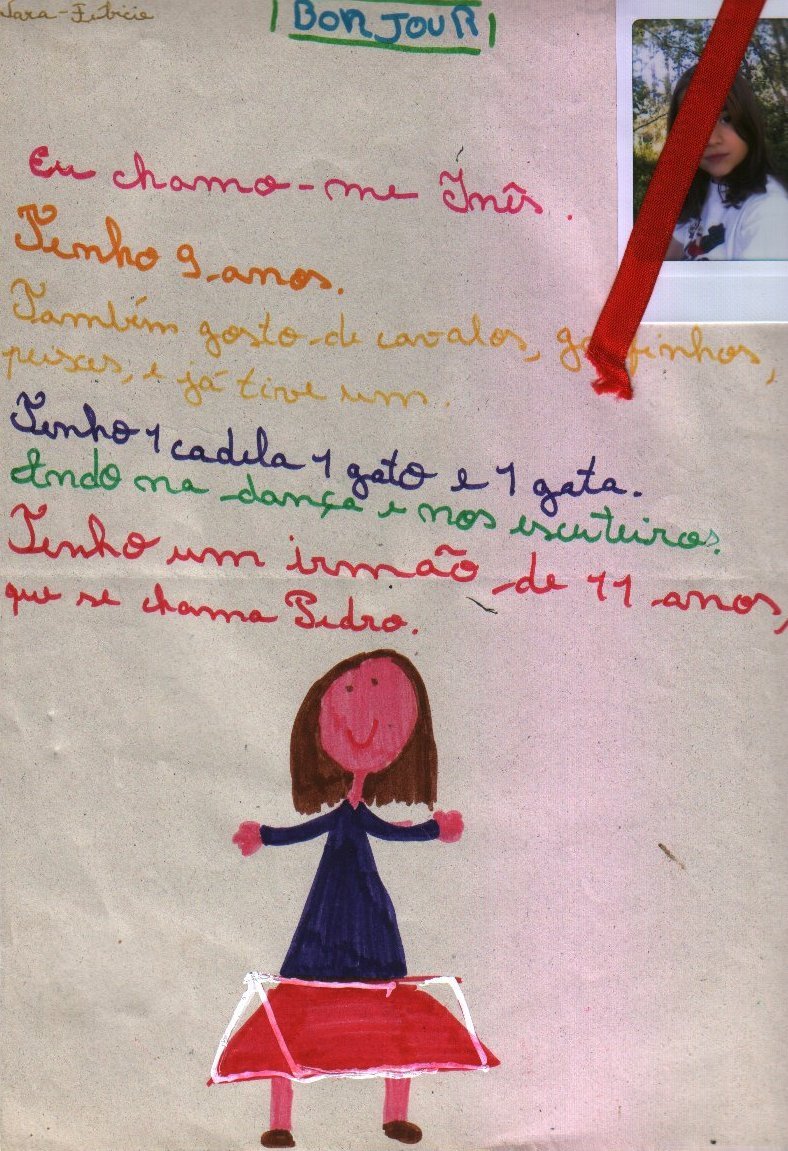 Sara -
BONJOUR
Eu chamo-me Inês.
Tenho 9 anos.
Também gosto de cavalos, golfinhos,
peixes, e já tive um.
Tenho 1 cadela 1 gato e 1 gata.
Ando na dança e nos escuteiros.
Tenho um irmão de 11 anos,
que se chama Pedro.